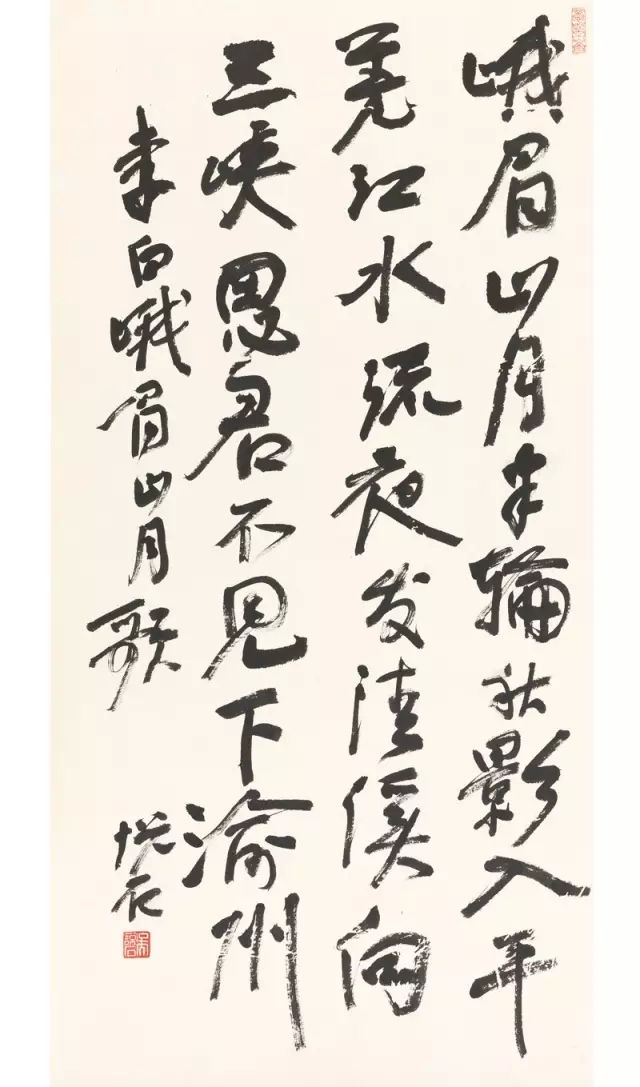 峨眉山月半輪秋影入平
羌江水流夜发清溪向
三峡思君不見下渝州
李白峨眉山月歌
悦石